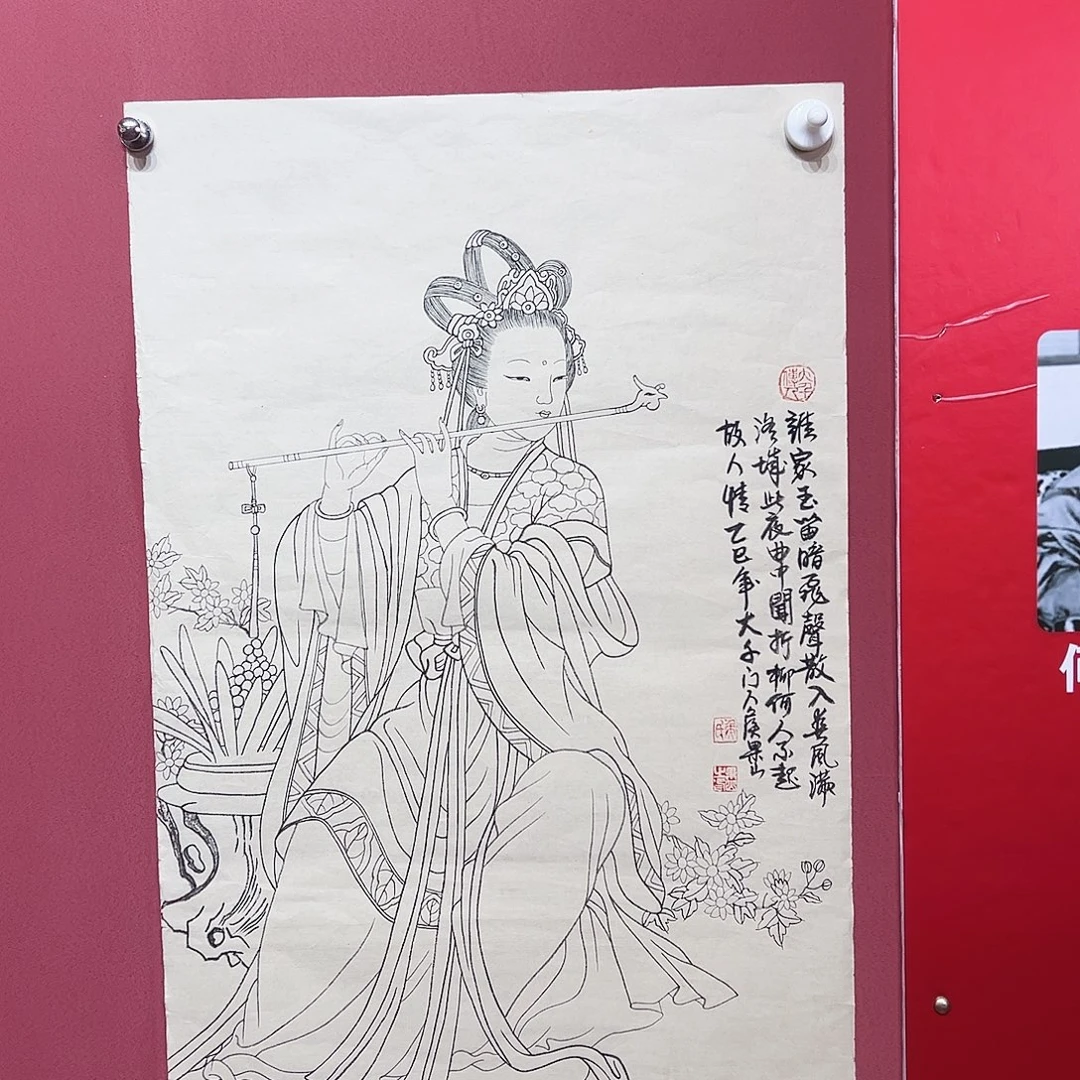 誰家玉笛暗飛聲散入春風滿
洛城此夜曲中聞折柳何人不起
故人情乙巳年大千门人侯山